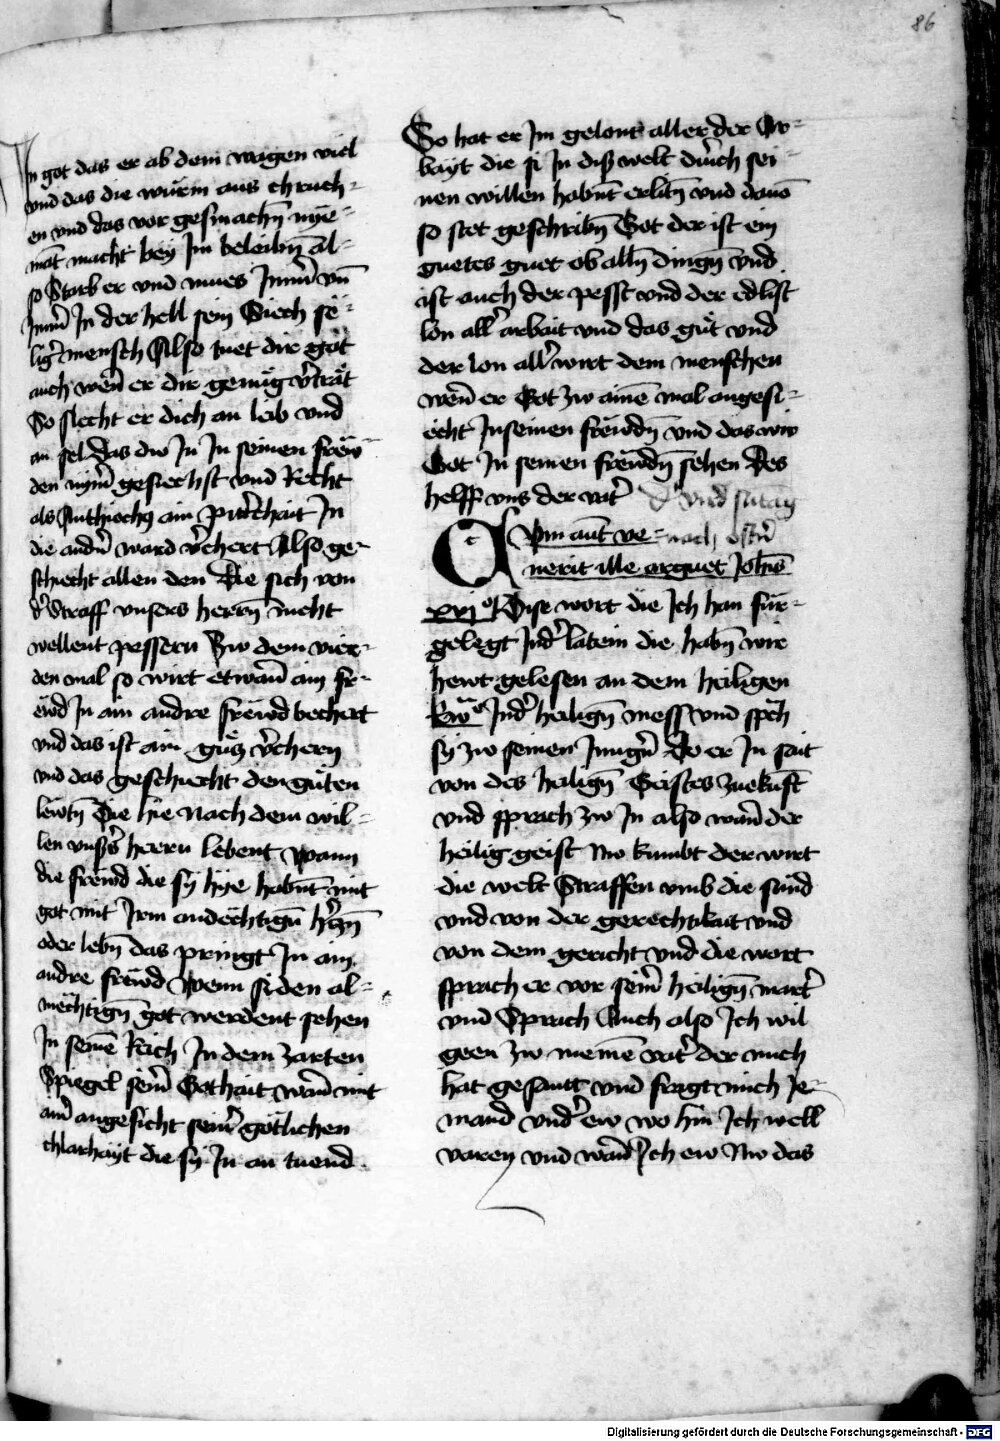 86
In got das er ab dem wagen viel
vnd das die würm aus chruch-
en vnd das vor gesmachn̄ nye-
māt macht bey Im beleibn̄ Al-
so Starb er vnd mues Im̄ vn̄
Im̄ In der hell sein Siech se-
lig mensch Also tuet dir got
auch wen̄ er dir genůg v̓trāt
So slecht er dich an leib vnd
an sel das dw In In seinen frew-
den nym̄ gesiechst vnd Recht
als Anthiochꝰ ain pitt̓chait In
die and̓n ward v̓chert Also ge-
schiecht allen den Die sich von
d̓ Straff vnsers herrn̄ nicht
wellent pessern Zw dem vier-
den mal so wirt etwan̄ ain fr-
ewd In ain andre frewd bechert
vnd das ist ain gůß v̓chern
vnd das geschiecht den gůten
lewtn̄ Die hie nach dem wil-
len vnsers herrn lebent Wann
die frewd die sy hye habn̄t mit
got mit Irm andēchtign̄ h̓czn̄
oder lebn̄ das pringt In ain
andre frewd Wenn si den al-
mēchtign̄ got werdent sehen
In seinē Reich In dem zarten
Spiegel seiner Gothait wan̄ mit
ain̄ angesicht seiner götlichen
chlarhayt die sy In an tuend
So hat er Im gelont aller der Ar-
bayt die si In diß welt durch sei-
nen willen habn̄t erlitn̄ vnd dauō
so stet geschribn̄ Got der ist ein
guetes guet ob alln̄ dingn̄ vnd
ist auch der pesst vnd der edlist
lon all̓ arbait vnd das gůt vnd
der lon all̓ wirt dem menschen
wen̄ er Got zw ainē mal angesi-
echt In seinen frewdn̄ vnd das wir
Got In seinen frewdn̄ sehen Des
helff vns der vat̓
Cum aūt ve- nach ost̓n
nerit ille arguet Joh̄is
xvjº Dise wort die Ich han für-
gelegt Ind̓ latein die habn̄ wir
hewt gelesen an dem heiligen
Ewº Ind̓ heilign̄ mess vnd sp̄ch
sy zw seinen Iung̓n Do er In sait
von des heilign̄ Geistes zuekūft
vnd sprach zw In also wan̄ der
heilig geist nw kumbt der wirt
die welt Straffen vmb die sünd
vnd von der gerechtikait vnd
von dem gericht vnd die wort
sprach er vor seīr heilign̄ mart̓
vnd Sprach Auch also Ich wil
geen zw meinē vat̓ der mich
hat gesantt vnd fragt mich Ie-
mand vnd̓ ew wo hin Ich well
varen vnd wan̄ Ich ew nw das
Digitalisierung gefördert durch die Deutsche Forschungsgemeinschaft - DFG